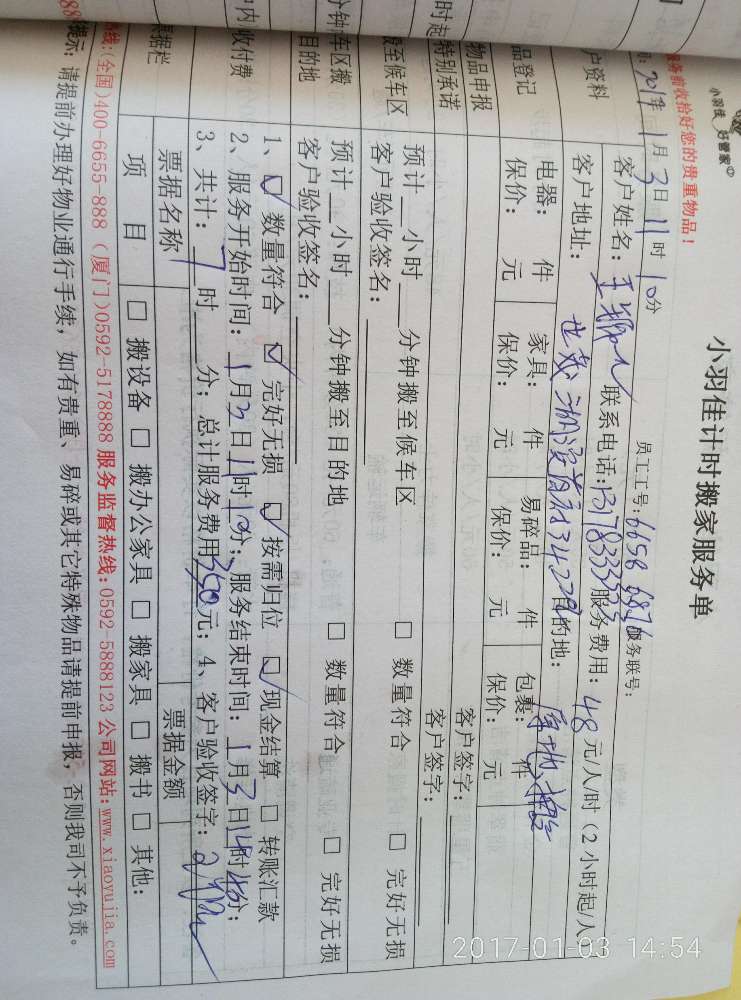 小羽佳 好管家
小羽佳计时搬家服务单
服务前收拾好您的贵重物品!
员工工号: 6656 6876 服务联号:
2017年1月3日11时10分
户资料
客户姓名: 联系电话: 服务费用: 48元/人/时(2小时起/人
客户地址: 目的地:
品登记
电器: 件 家具: 件 易碎品: 件 包裹: 件
保价: 元 保价: 元 保价: 元 保价: 元
物品申报 客户签字:
特别承诺 客户签字:
时起
至候车区
预计__小时__分钟搬至候车区 □ 数量符合 □ 完好无损
客户验收签名:
分钟车区搬
目的地
预计__小时__分钟搬至目的地 □ 数量符合 □ 完好无损
客户验收签名:
内 收付费
1、☑ 数量符合 ☑ 完好无损 ☑ 按需归位 ☑ 现金结算 □ 转账汇款
2、服务开始时间: 1月3日11时10分; 服务结束时间: 1月3日14时45分;
3、共计: 7时__分; 总计服务费用350元; 4、客户验收签字:
据栏
票据名称 票据金额
项 目 □ 搬设备 □ 搬办公家具 □ 搬家具 □ 搬书 □ 其他:
热线:(全国)400-6655-888 (厦门)0592-5178888 服务监督热线:0592-5888123 公司网站:www.xiaoyujia.com
提示: 请提前办理好物业通行手续, 如有贵重、易碎或其它特殊物品请提前申报, 否则我司不予负责。
2017-01-03 14:54